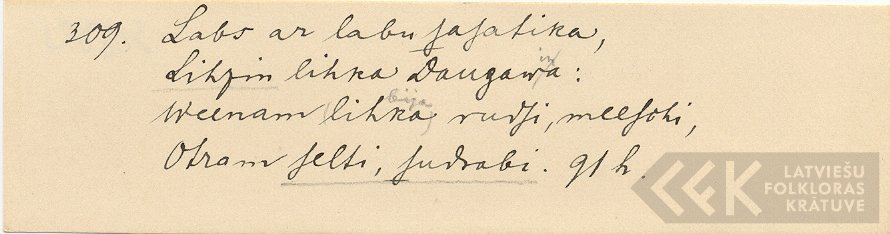 309. Labs ar labu sasatika,
Lihzin lihka Daugawa:
in
bija
Weenam lihka rudsi, meeschi,
Otram selti, sudrabi. 91 h.
LATVIEŠU
FOLKLORAS
KRĀTUVE